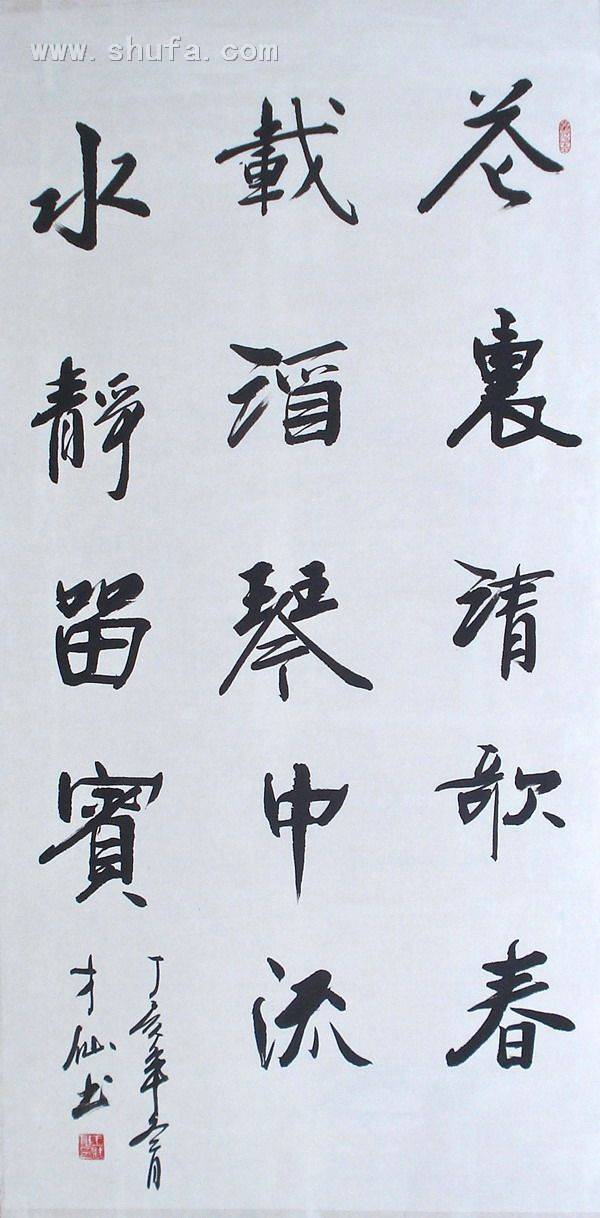 www.shufa.com
花裏清歌春
載酒琴中流
水靜留賓
丁亥年冬月
才仙书